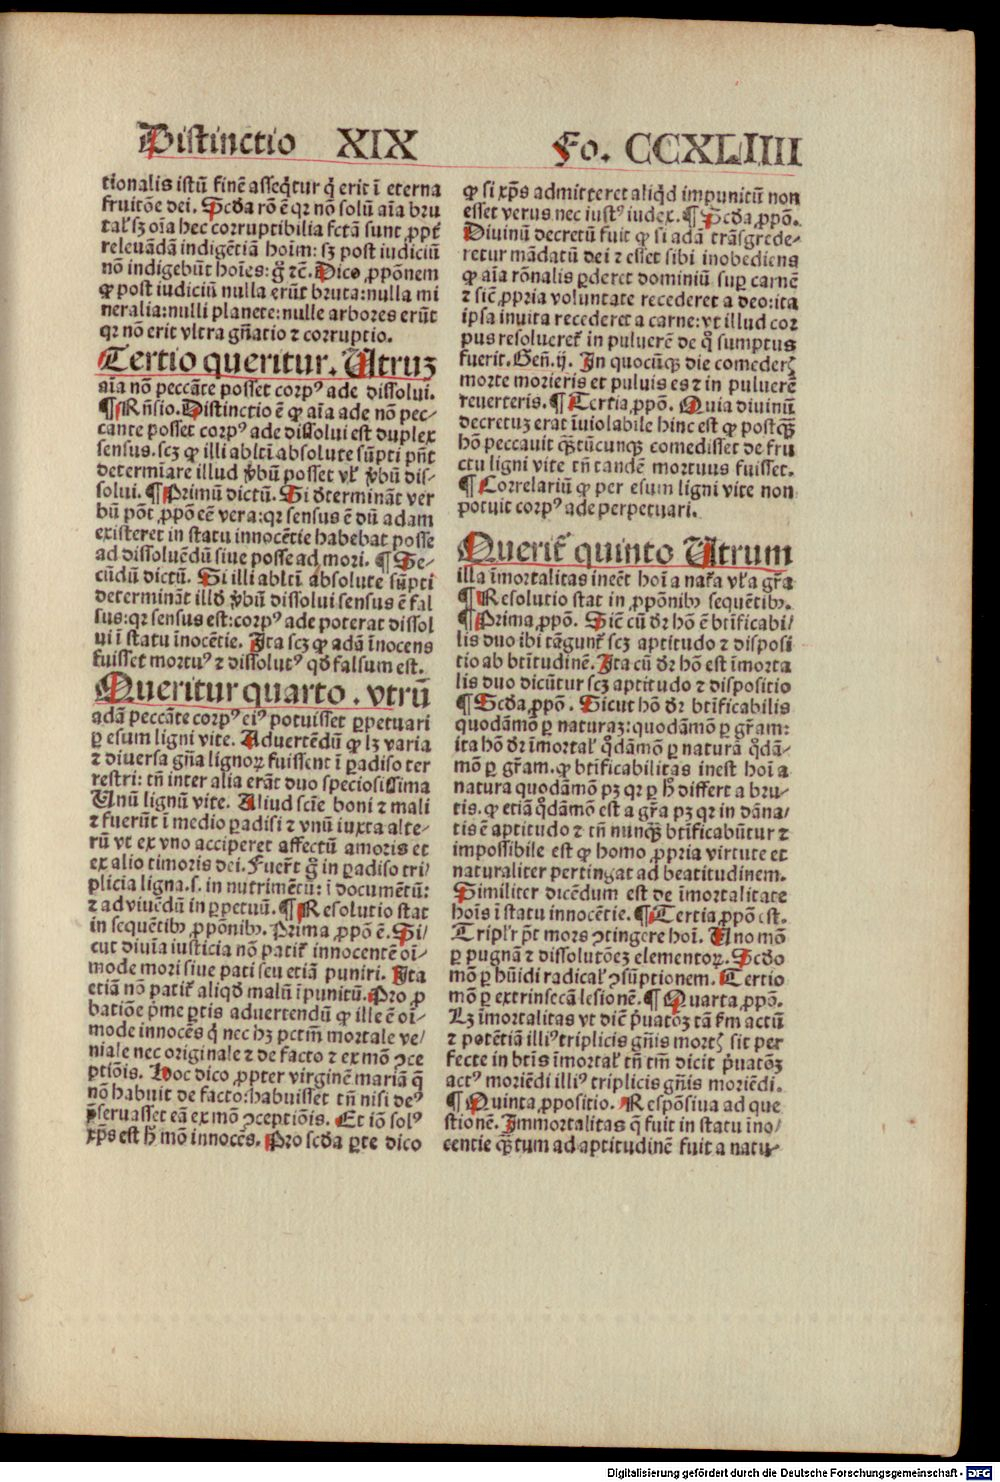 Distinctio XIX Fo. CCXLIIII
tionalis istū finē asseq̄tur q̇ erit ī eterna
fruitōe dei. Scḋa rō ē qꝛ nō solū aīa bru
talꝭ sꝫ oīa hec corruptibilia fctā sunt ꝓpt̄
releuādā indigētiā hoīm: sꝫ post iudiciū
nō indigebūt hoīes: gͦ ⁊c̄. Dico ꝓpōnem
ꝙ post iudiciū nulla erūt bruta: nulla mi
neralia: nulli planete: nulle arbores erūt
qꝛ nō erit vltra gn̄atio ⁊ corruptio.
Tertio queritur. Utruꝫ
aīa nō peccāte posset corpꝰ ade dissolui.
¶ Rn̄sio. Distinctio ē ꝙ aīa ade nō pec-
cante posset corpꝰ ade dissolui est duplex
sensus. scꝫ ꝙ illi ablti̅ absolute sūpti pn̄t
determīare illud v̓bū posset vlꝭ v̓bū dis-
solui. ¶ Primū dictū. Si ḋterminānt ver
bū pōt ꝓpō eē vera: qꝛ sensus ē dū adam
existeret in statu innocētie habebat posse
ad dissoluēdū siue posse ad mori. ¶ Se-
cūdū dictū. Si illi abltī absolute sūpti
determināt illḋ v̓bū dissolui sensus ē fal
sus: qꝛ sensus est: corpꝰ ade poterat dissol
ui ī statu īnocētie. Ita scꝫ ꝙ adā īnocens
fuisset mortuꝰ ⁊ dissolutꝰ qḋ falsum est.
Queritur quarto. vtrū
adā peccāte corpꝰ eiꝰ potuisset ꝑpetuari
ꝑ esum ligni vite. Aduertēdū ꝙ lꝫ varia
⁊ diuersa gn̄a lignoꝝ fuissent ī ꝑadiso ter
restri: tn̄ inter alia erāt duo speciosissima
Unū lignū vite. Aliud sciē boni ⁊ mali
⁊ fuerūt ī medio ꝑadisi ⁊ vnū iuxta alte-
rū vt ex vno acciperet affectū amoris et
ex alio timoris dei. Fuer̄t gͦ in ꝑadiso tri-
plicia ligna. s. in nutrimētū: ī documētū:
⁊ ad viuēdū in ꝑpetuū. ¶ Resolutio stat
in sequētibꝰ ꝓpōnibꝰ. Prima ꝓpō ē. Si-
cut diuīa iusticia nō patit̄ innocentē oī-
mode mori siue pati seu etiā puniri. Ita
etiā nō patit̄ aliqḋ malū īpunitū. Pro ꝓ
batiōe p̄me ꝑtis aduertendū ꝙ ille ē oī-
mode innocēs q̇ nec hꝫ pctm̄ mortale ve-
niale nec originale ⁊ de facto ⁊ ex mō ꝯce
ptiōis. Hoc dico ꝓpter virginē mariā q̄
nō habuit de facto: habuisset tn̄ nisi deꝰ
p̄seruasset eā ex mō ꝯceptiōis. Et iō solꝰ
xp̄s est hͦ mō innocēs. Pro scḋa ꝑte dico
ꝙ si xp̄s admitteret aliqḋ impunitū non
esset verus nec iustꝰ iudex. ¶ Scḋa ꝓpō.
Diuinū decretū fuit ꝙ si adā trāsgrede-
retur mādatū dei ⁊ esset sibi inobediens
ꝙ aīa rōnalis ꝑderet dominiū suꝑ carnē
⁊ sic̄ ꝓpria voluntate recederet a deo: ita
ipsa inuita recederet a carne: vt illud cor
pus resolueret̄ in puluerē de qͦ sumptus
fuerit. Gen̄. ij. In quocūqꝫ die comederꝭ
morte morieris et puluis es ⁊ in puluerē
reuerteris. ¶ Tertia ꝓpō. Quia diuinū
decretuꝫ erat īuiolabile hinc est ꝙ postq̄ꝫ
hō peccauit q̄ꝫtūcunqꝫ comedisset de fru
ctu ligni vite tn̄ tandē mortuus fuisset.
¶ Correlariū ꝙ per esum ligni vite non
potuit corpꝰ ade perpetuari.
Querit̄ quinto Utrum
illa īmortalitas ineēt hoī a nar̄a vlꝭa gr̄a
¶ Resolutio stat in ꝓpōnibꝰ sequētibꝰ.
¶ Prima ꝓpō. Sic̄ cū ḋr hō ē btīficabi-
lis duo ibi tāgunt̄ scꝫ aptitudo ⁊ disposi
tio ab btītudinē. Ita cū ḋr hō est īmorta
lis duo dicūtur scꝫ aptitudo ⁊ dispositio
¶ Scḋa ꝓpō. Sicut hō ḋr btīficabilis
quodāmō ꝑ naturaꝫ: quodāmō ꝑ gr̄am:
ita hō ḋr īmortalꝭ qͦdāmō ꝑ naturā qͦdā-
mō ꝑ gr̄am. ꝙ btīficabilitas inest hoī a
natura quodāmō pꝫ qꝛ ꝑ hͦ differt a bru-
tis. ꝙ etiā qͦdāmō est a gr̄a pꝫ qꝛ in dāna-
tis ē aptitudo ⁊ tn̄ nunq̄ꝫ btīficabūtur ⁊
impossibile est ꝙ homo ꝓpria virtute et
naturaliter pertingat ad beatitudinem.
Similiter dicēdum est de īmortalitate
hoīs ī statu innocētie. ¶ Tertia ꝓpō est.
Triplr̄ pt̄ mors ꝯtingere hoī. Uno mō
ꝑ pugnā ⁊ dissolutōeꝫ elementoꝝ. Scḋo
mō ꝑ hūidi radicalꝭ ꝯsūptionem. Tertio
mō ꝑ extrinsecā lesionē. ¶ Quarta ꝓpō.
Lꝫ īmortalitas vt dic̄ p̓uatōꝫ tā ꝼm actū
⁊ potētiā illiꝰ triplicis gn̄is mortꝭ sit per
fecte in btīs īmortalꝭ tn̄ tm̄ dicit p̓uatōꝫ
actꝰ moriēdi illiꝰ triplicis gn̄is moriēdi.
¶ Quinta ꝓpositio. Respōsiua ad que
stionē. Immortalitas q̄ fuit in statu īno-
centie q̄ꝫtum ad aptitudinē fuit a natu-
Digitalisierung gefördert durch die Deutsche Forschungsgemeinschaft - DFG